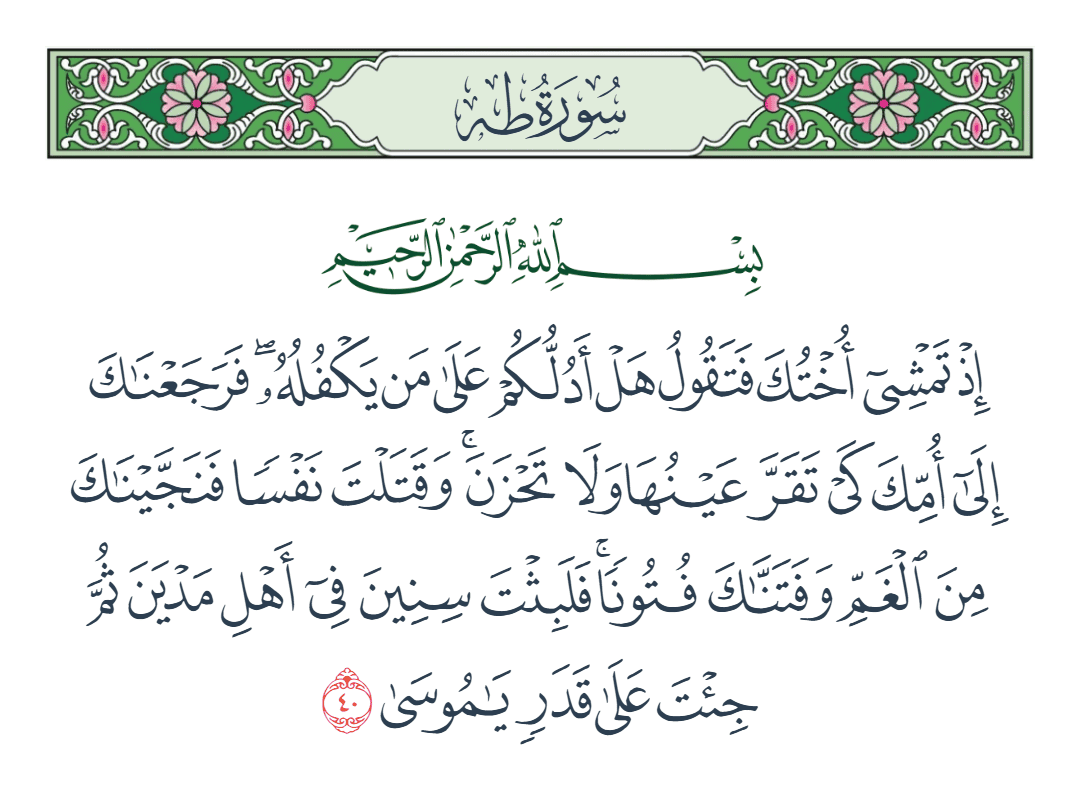 سُورَةُ طه
بِسْمِ ٱللَّهِ ٱلرَّحْمَٰنِ ٱلرَّحِيمِ
إِذْ تَمْشِىٓ أُخْتُكَ فَتَقُولُ هَلْ أَدُلُّكُمْ عَلَىٰ مَن يَكْفُلُهُۥ ۖ فَرَجَعْنَٰكَ
إِلَىٰٓ أُمِّكَ كَىْ تَقَرَّ عَيْنُهَا وَلَا تَحْزَنَ ۚ وَقَتَلْتَ نَفْسًا فَنَجَّيْنَٰكَ
مِنَ ٱلْغَمِّ وَفَتَنَّٰكَ فُتُونًا ۚ فَلَبِثْتَ سِنِينَ فِىٓ أَهْلِ مَدْيَنَ ثُمَّ
جِئْتَ عَلَىٰ قَدَرٍ يَٰمُوسَىٰ ٤٠